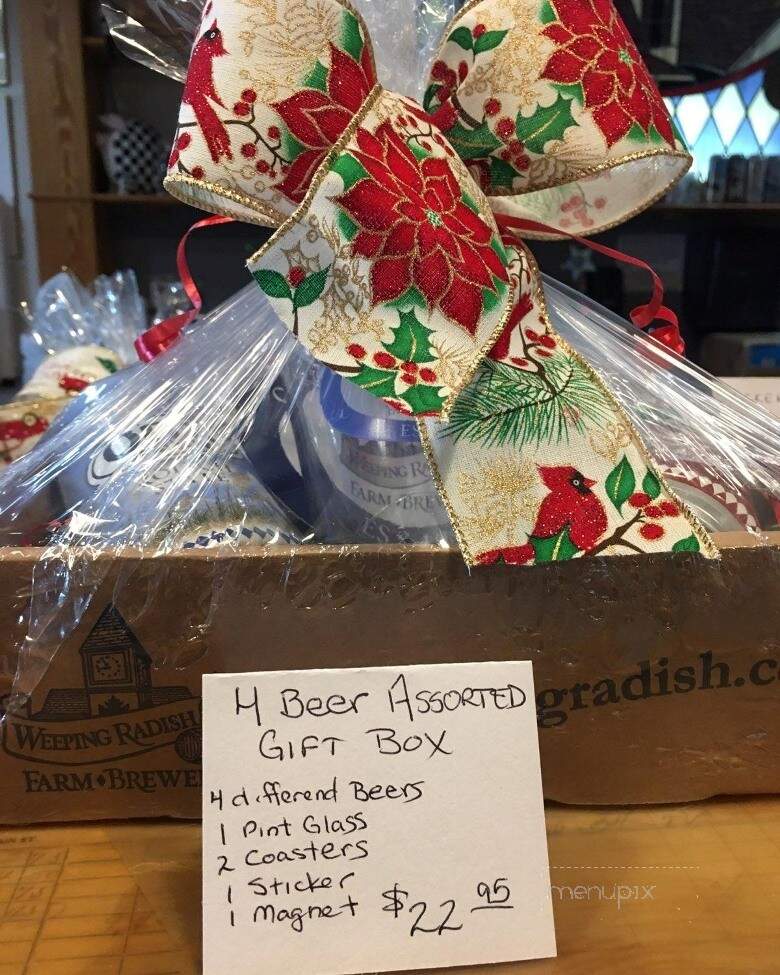 ES
WEEPING R
FARM BRE
ES
gradish.c
WEEPING RADISH
FARM • BREWE
4 Beer Assorted
Gift Box
4 differend Beers
1 Pint Glass
2 Coasters
1 Sticker
1 Magnet $22 95
menupix